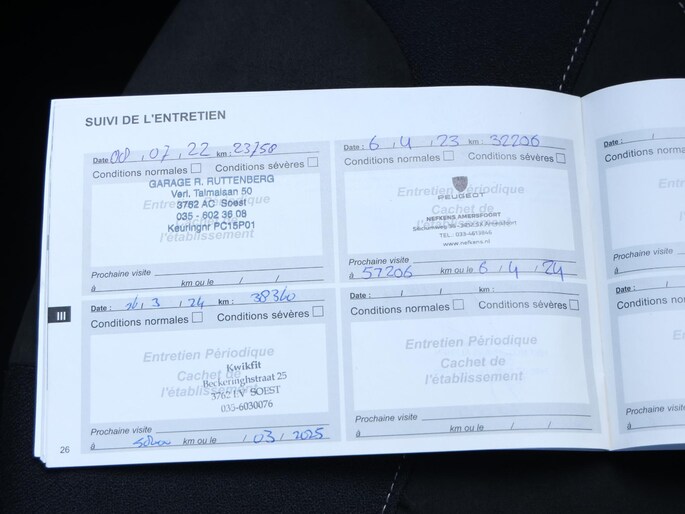 SUIVI DE L'ENTRETIEN
Date 08 , 07 , 22 km : 23750
Conditions normales Conditions sévères
Entretien Périodique
Cachet de
l'établissement
GARAGE R. RUTTENBERG
Verl. Talmalaan 50
3762 AC Soest
035 - 602 36 08
Keuringnr PC15P01
Prochaine visite
à km ou le / /
Date : 6 , 4 , 23 km : 32206
Conditions normales Conditions sévères
Entretien Périodique
Cachet de
l'établissement
PEUGEOT
NEFKENS AMERSFOORT
www.nefkens.nl
Prochaine visite
à 57206 km ou le 6 / 4 / 24
Date : 26 / 3 / 24 km : 38340
Conditions normales Conditions sévères
Entretien Périodique
Cachet de
l'établissement
Kwikfit
Beckeringhstraat 25
3762 EV SOEST
035-6030076
Prochaine visite
à km ou le / 03 / 2025
Date : / / km :
Conditions normales Conditions sévères
Entretien Périodique
Cachet de
l'établissement
Prochaine visite
à km ou le / /
III
26
Date : /
Conditions norma
Prochaine visite
à
Date : /
Conditions norm
Prochaine visite
à